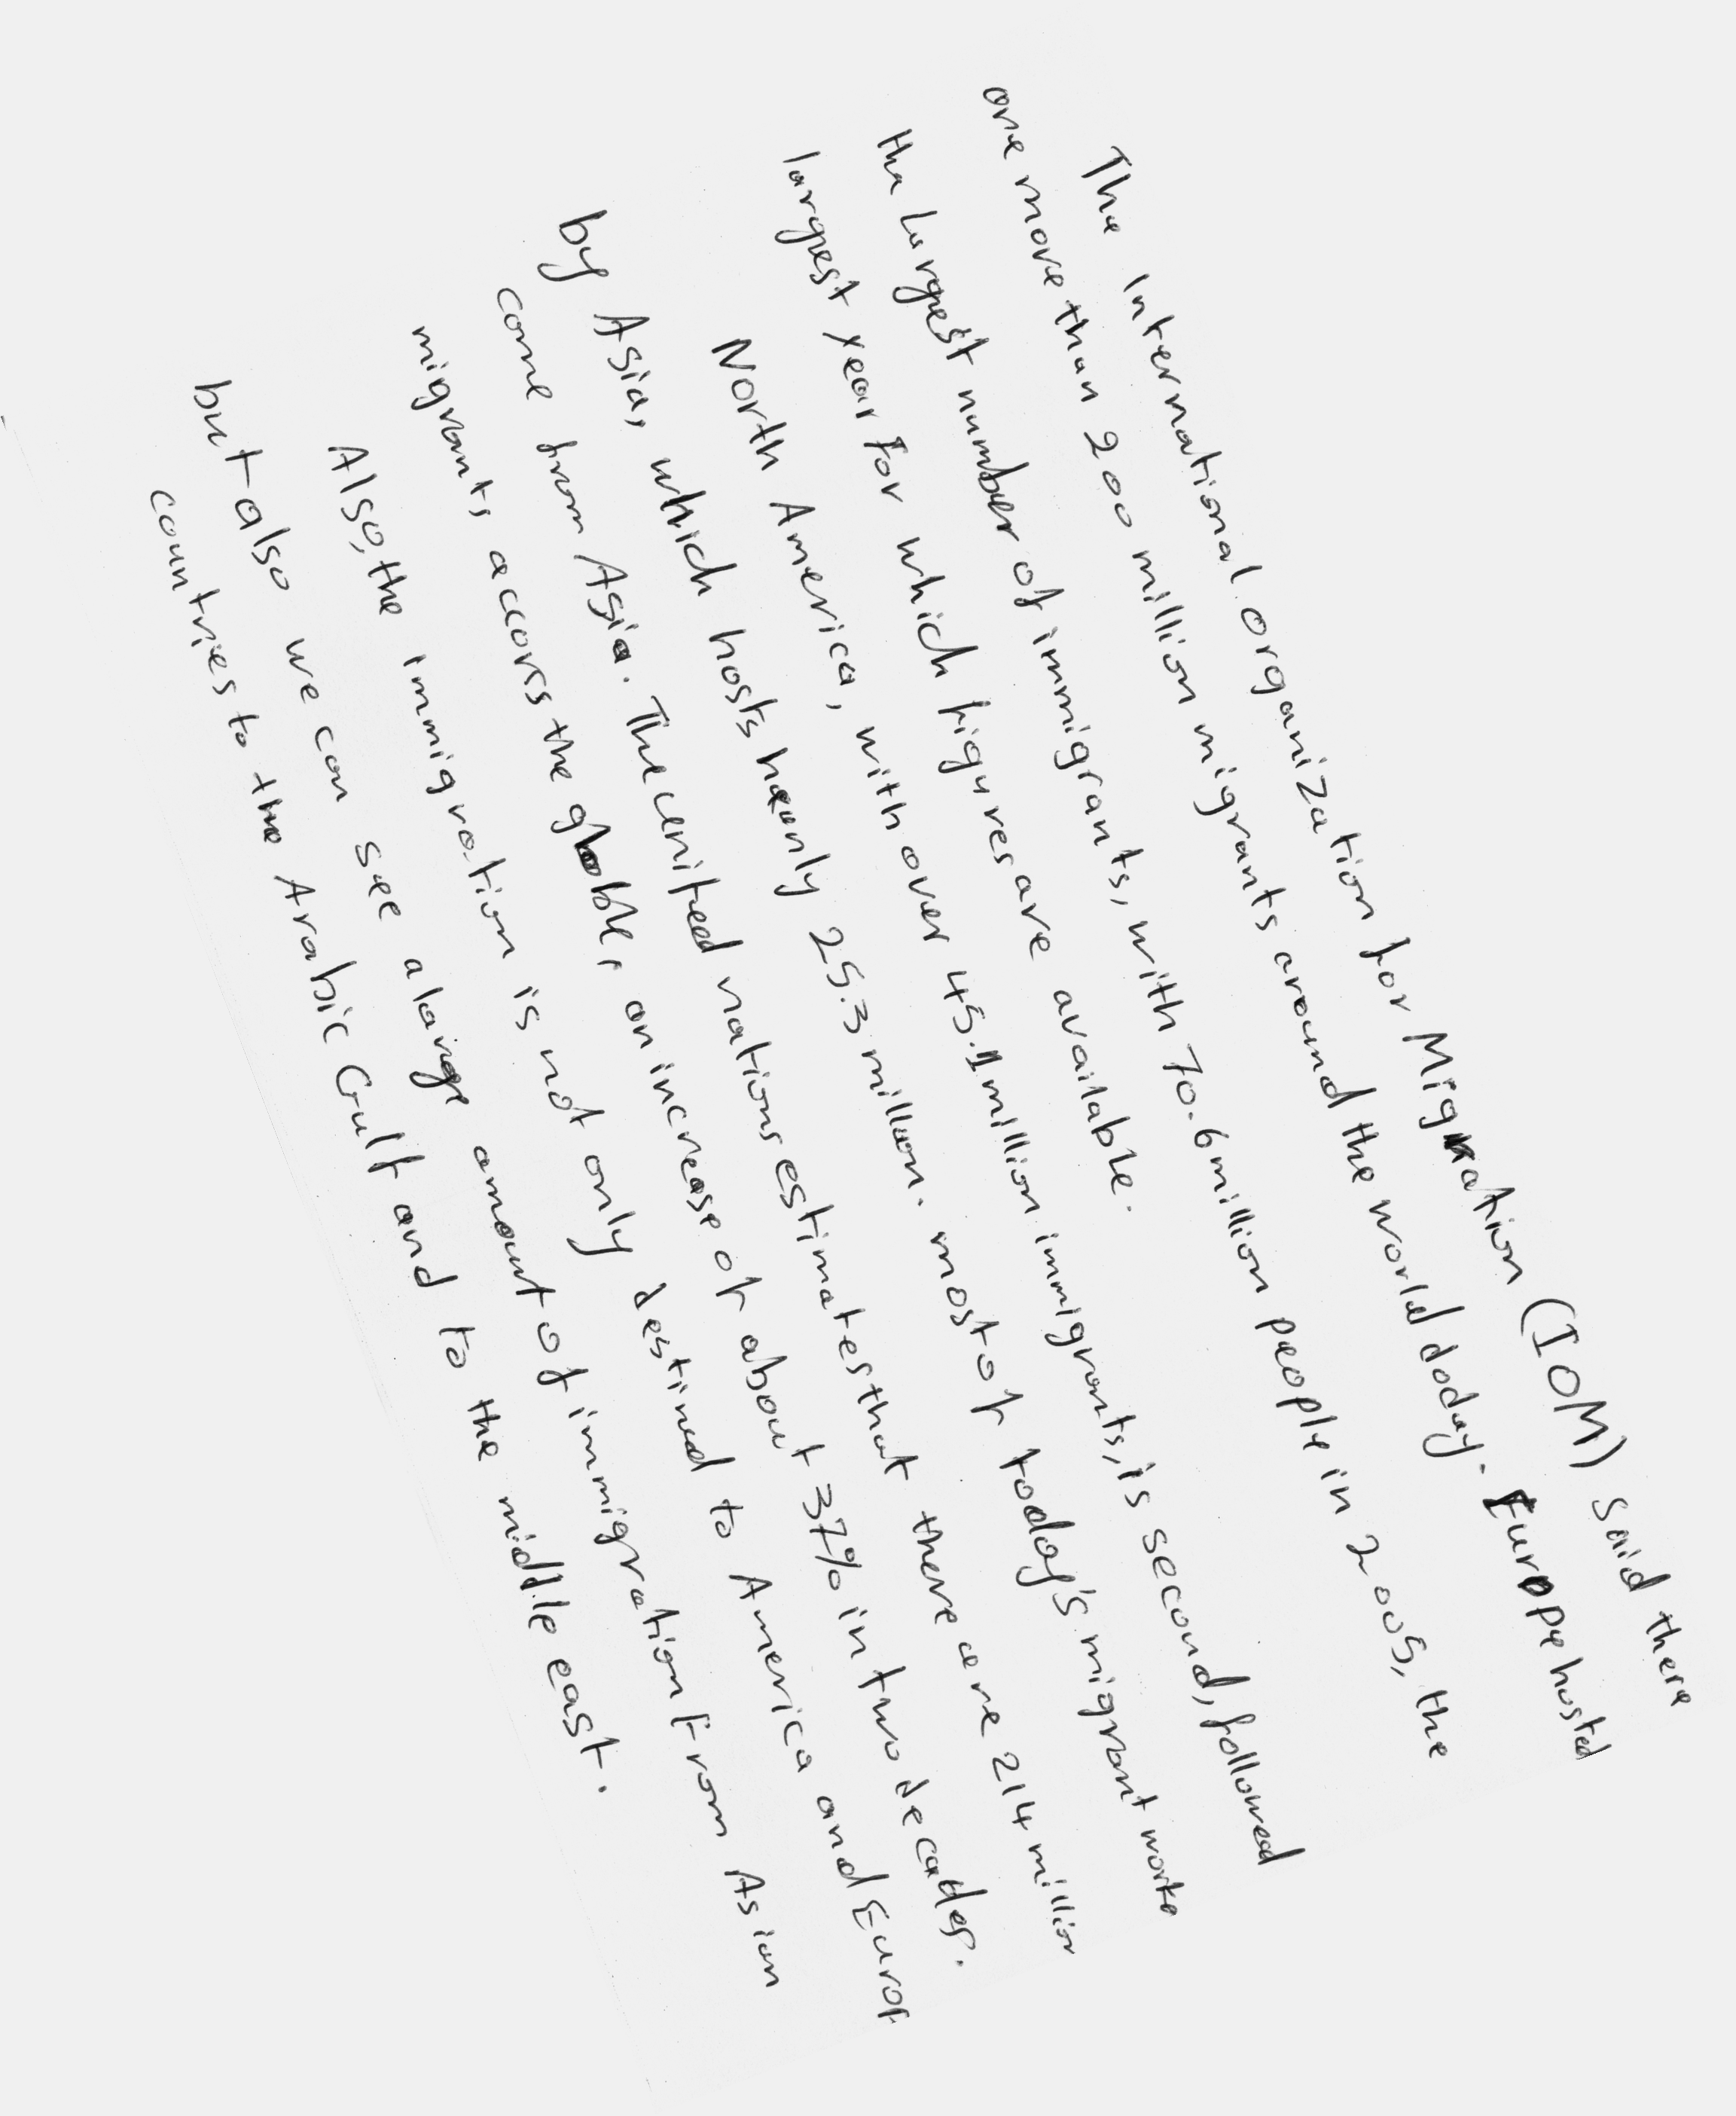 The International Organization for Migration (IOM) said there
are more than 200 million migrants around the world doday. Europe hosted
the largest number of immigrants, with 70.6 million people in 2005, the
largest year for which figures are available.
North America, with over 45.1 million immigrants, is second, followed
by Asia, which hosts nearly 25.3 million. most of today's migrant worke
come from Asia. The United nations estimates that there are 214 million
migrants accorss the globle, an increase of about 37% in two decades.
Also, the immigration is not only destined to America and Europ
but also we can see a large amout of immigration From Asian
countries to the Arabic Gulf and to the middle east.